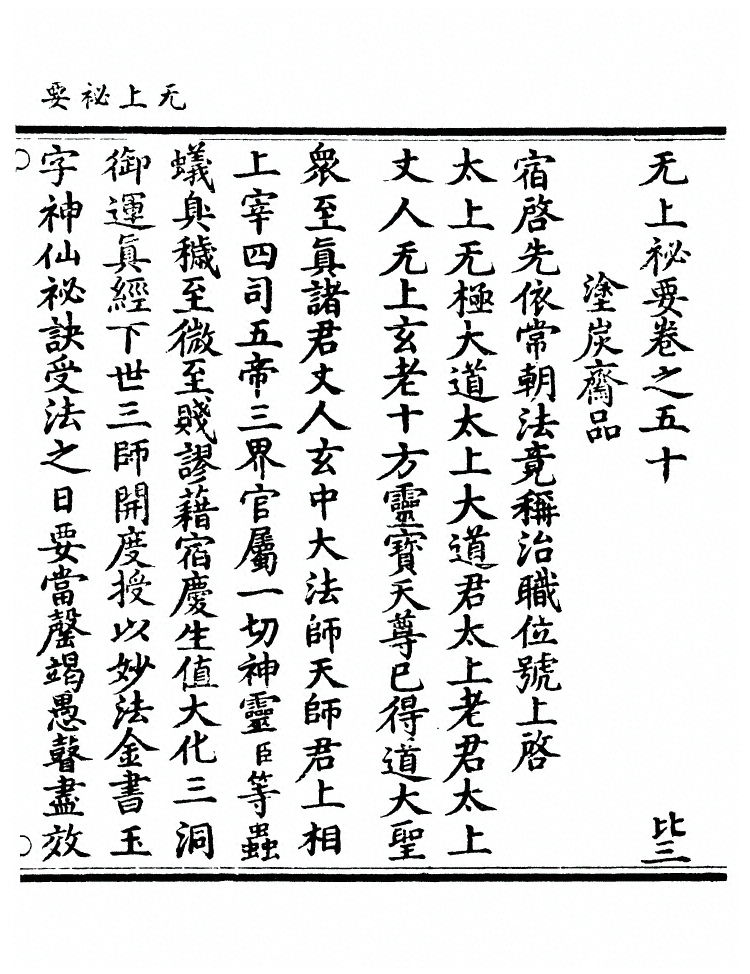 无上祕要
无上祕要卷之五十
比三
塗炭齋品
宿啓先依常朝法竟稱治職位號上啓
太上无極大道太上大道君太上老君太上
丈人无上玄老十方靈寳天尊巳得道大聖
衆至眞諸君丈人玄中大法師天師君上相
上宰四司五帝三界官屬一切神靈臣等蟲
蟻臭穢至微至賤謬藉宿慶生值大化三洞
御運眞經下世三師開度授以妙法金書玉
字神仙祕訣受法之日要當罄竭愚瞽盡效